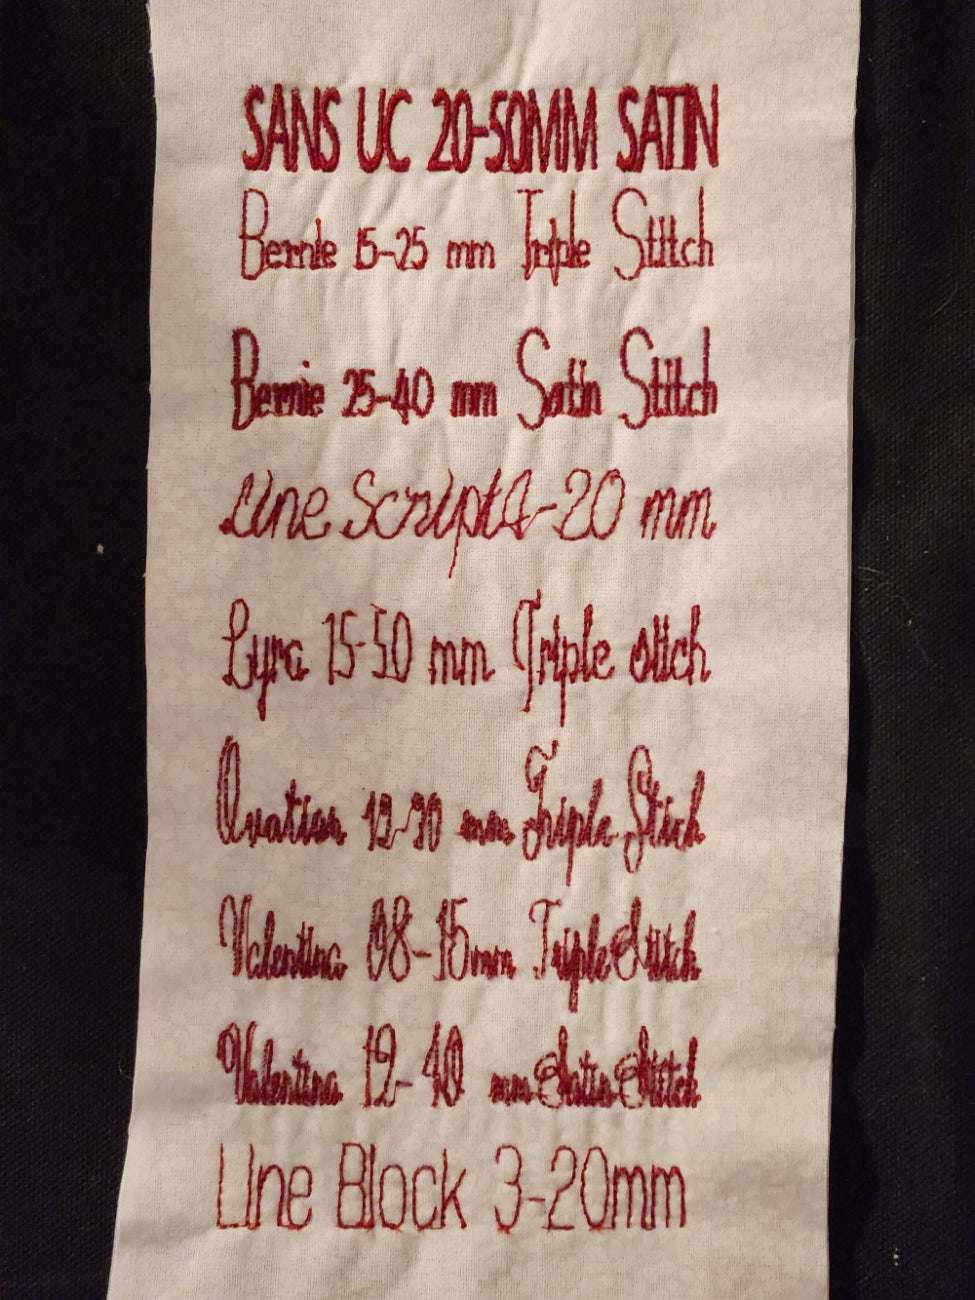 SANS UC 20-50MM SATIN
Bernie 15-25 mm Triple Stitch
Bernie 25-40 mm Satin Stitch
Line Script 4-20 mm
Lyra 15-50 mm Triple stich
Ovation 12-90 mm Triple Stich
Valentina 08-15mm Triple Stitch
Valentina 12-40 mm Satin Stitch
Line Block 3-20mm